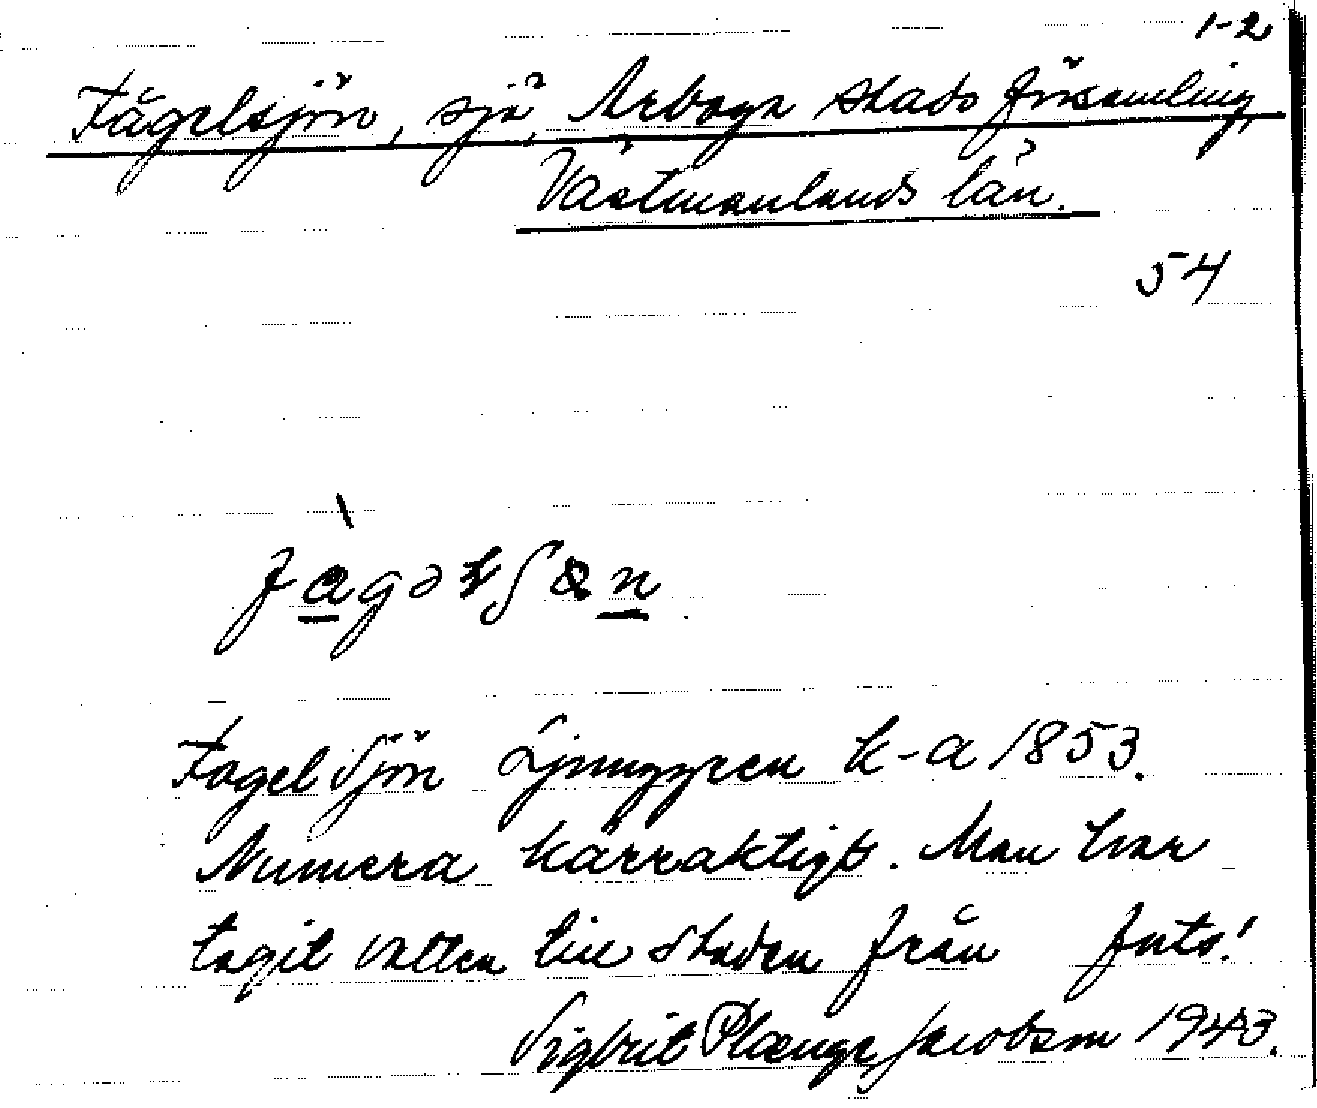 1-2
Fågelsjön, sjö, Arboga stads församling,
Västmanlands län.
54
Fagel Sjön Ljunggren k-a 1853.
Numera kärraktigt. Man har
tagit vatten till staden från
Sigbrit Plænge Jacobson 1943.